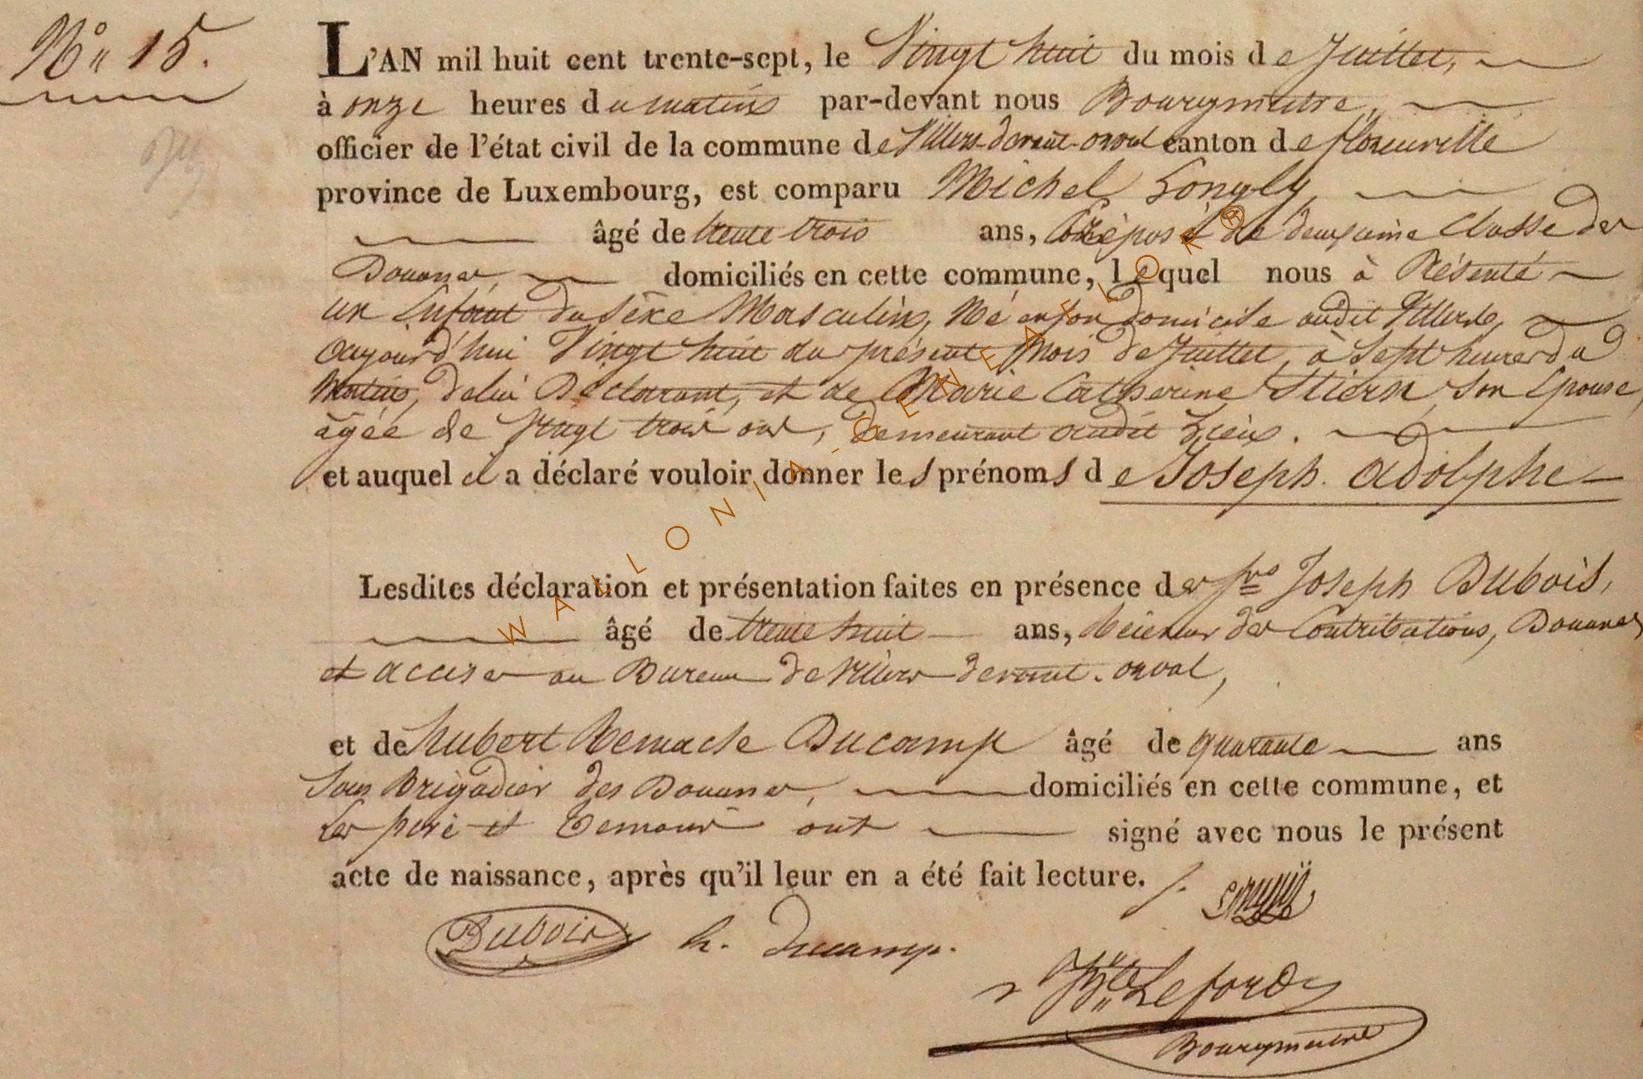 N° 15.
L'AN mil huit cent trente-sept, le Vingt huit du mois de Juillet,
à onze heures du matin par-devant nous Bourgmestre,
officier de l'état civil de la commune de Villers-devant-orval canton de florenville
province de Luxembourg, est comparu Michel Longly
âgé de trente trois ans, Préposé de deuxième Classe des
Douanes, domiciliés en cette commune, lequel nous à Présenté
un Enfant du Sexe Masculin, Né en son domicile audit Villers,
aujourd'hui Vingt huit du présent mois de Juillet, à Sept heures du
Matin, de lui Déclarant, et de Marie Catherine Stiern, son Epouse,
âgée de Vingt trois ans, demeurant audit Lieu.
et auquel il a déclaré vouloir donner les prénoms de Joseph adolphe
Lesdites déclaration et présentation faites en présence de Joseph Dubois,
âgé de trente huit ans, Receveur des Contributions, Douanes
et accises au Bureau de Villers devant-orval,
et de hubert Remacle Ducamp âgé de quarante ans
Sous Brigadier des Douanes, domiciliés en cette commune, et
les père et témoins ont signé avec nous le présent
acte de naissance, après qu'il leur en a été fait lecture.
Dubois h. ducamp.
Bourgmestre
WALLONIA-GENEAFLOR®